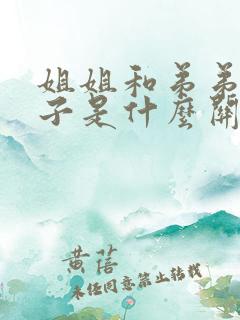 姐姐和弟弟
子是什麼關
黄蓓
未经同意禁止转载